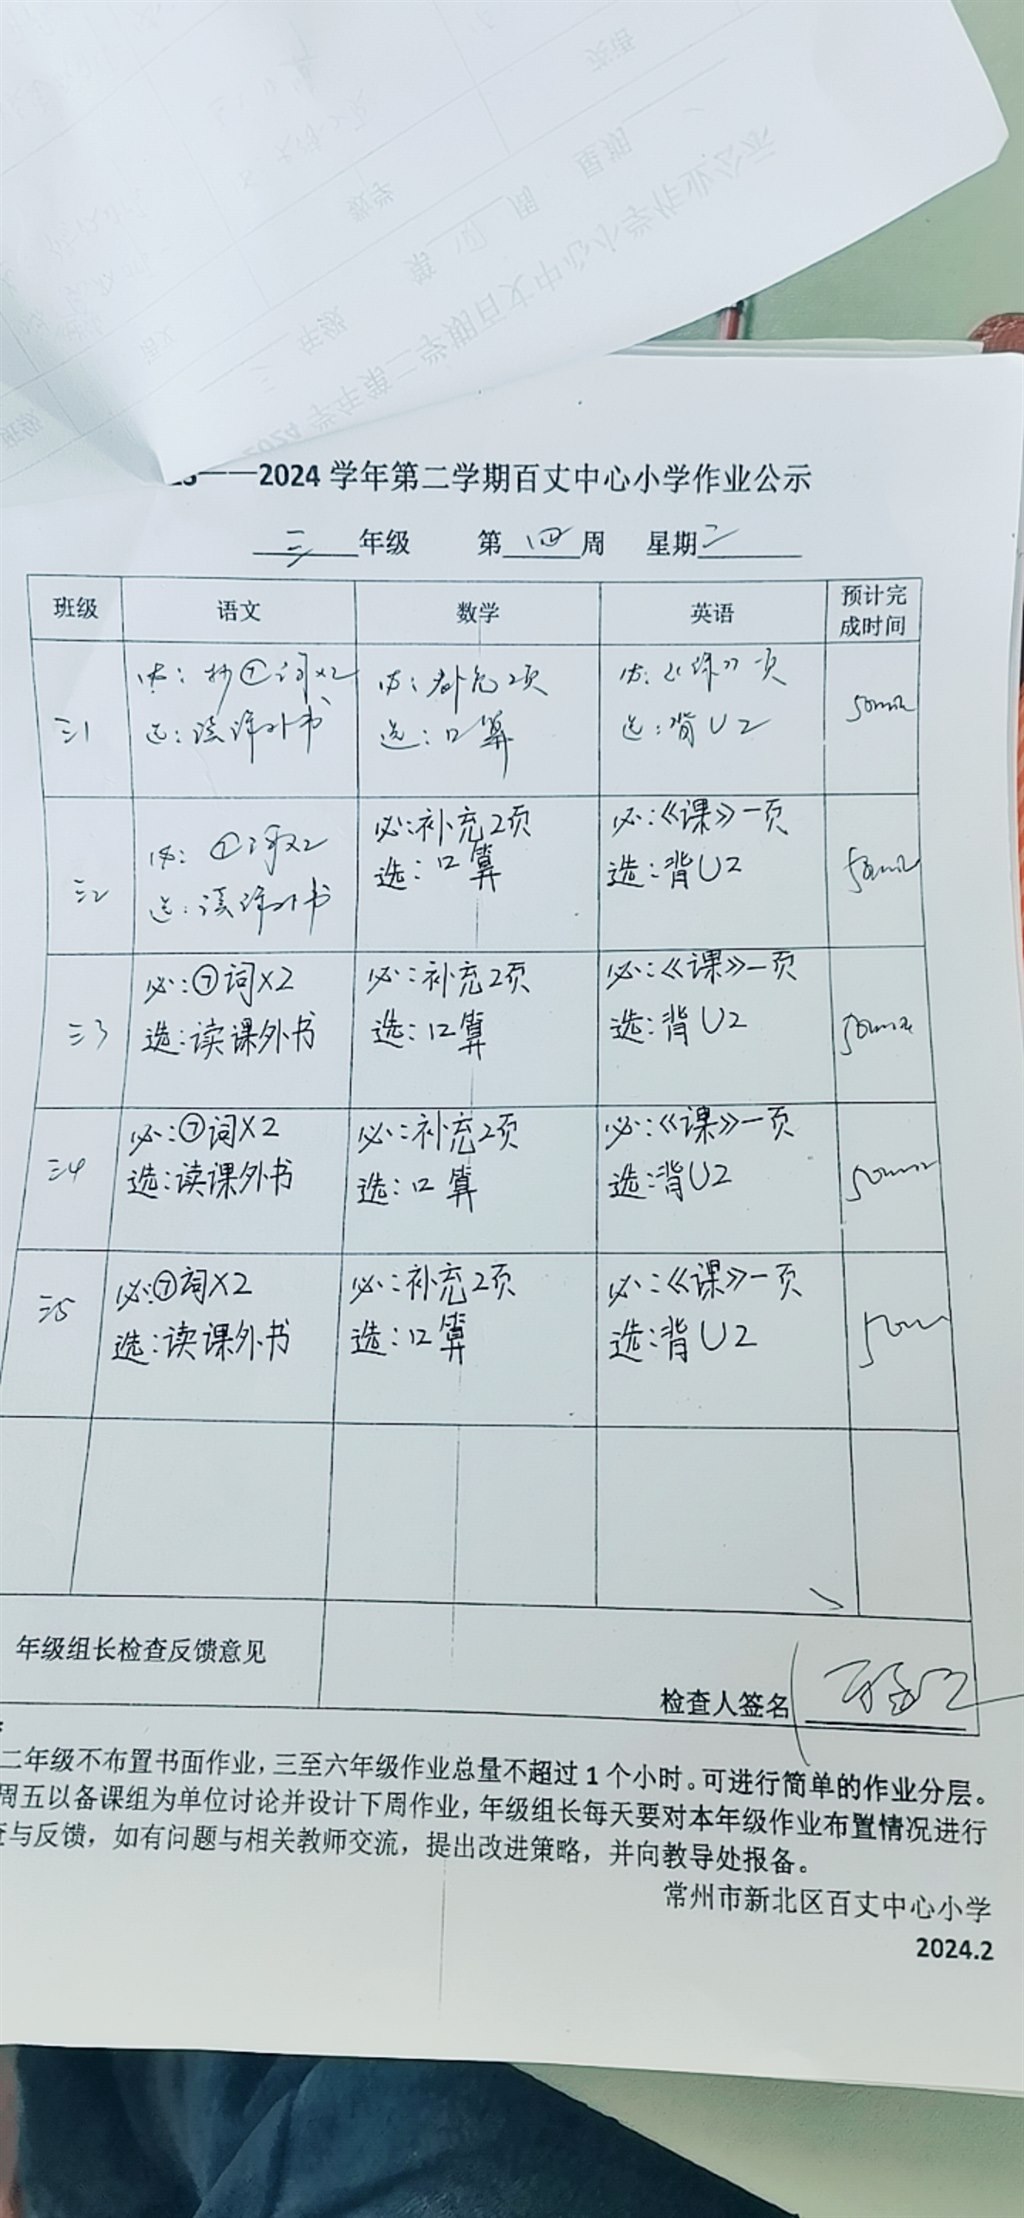 ——2024 学年第二学期百丈中心小学作业公示
三 年级 第 四 周 星期 二
班级 语文 数学 英语 预计完成时间
三1
必：抄⑦词×2
选：读课外书
必：补充2页
选：口算
必：《课》一页
选：背U2
50min
三2
必：⑦词×2
选：读课外书
必：补充2页
选：口算
必：《课》一页
选：背U2
50min
三3
必：⑦词×2
选：读课外书
必：补充2页
选：口算
必：《课》一页
选：背U2
50min
三4
必：⑦词×2
选：读课外书
必：补充2页
选：口算
必：《课》一页
选：背U2
50min
三5
必：⑦词×2
选：读课外书
必：补充2页
选：口算
必：《课》一页
选：背U2
年级组长检查反馈意见
检查人签名
二年级不布置书面作业，三至六年级作业总量不超过 1 个小时。可进行简单的作业分层。
周五以备课组为单位讨论并设计下周作业，年级组长每天要对本年级作业布置情况进行
与反馈，如有问题与相关教师交流，提出改进策略，并向教导处报备。
常州市新北区百丈中心小学
2024.2